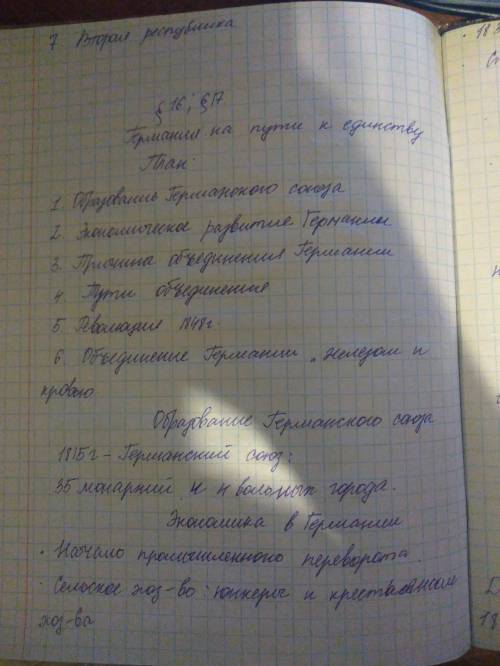 7 Вторая республика
§ 16; § 17
Германия на пути к единству
План:
1. Образование Германского союза
2. Экономическое развитие Германии
3. Причина объединения Германии
4. Пути объединения
5. Революция 1848г.
6. Объединение Германии „железом и
кровью
Образование Германского союза
1815г – Германский союз:
35 монархий, и 4 вольных города.
Экономика в Германии
· Начало промышленного переворота.
· Сельское хоз-во: юнкеры и крестьянские
хоз-ва
183
18